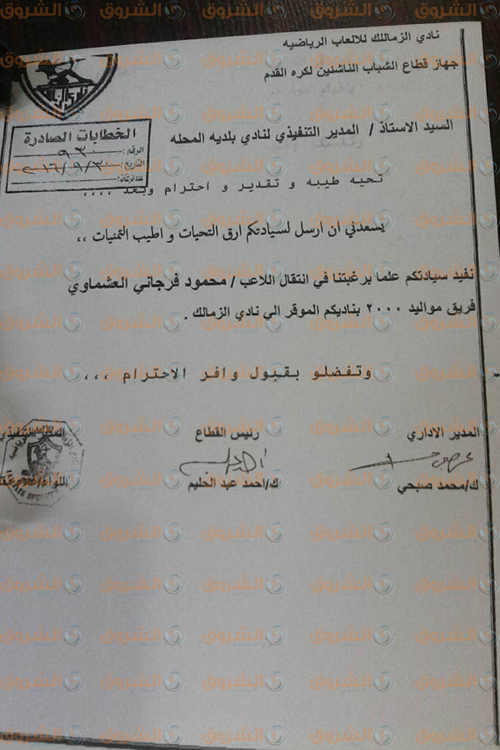 نادي الزمالك للالعاب الرياضيه
جهاز قطاع الشباب الناشئين لكره القدم
الخطابات الصادرة
الرقم: ٩٣
التاريخ: ٢٠١٦/٩/٣٠
السيد الاستاذ / المدير التنفيذي لنادي بلديه المحله
تحيه طيبه و تقدير و احترام وبعد ,,,,
يسعدني ان ارسل لسيادتكم ارق التحيات و اطيب التمنيات ,,
نفيد سيادتكم علما برغبتنا في انتقال اللاعب / محمود فرجاني العشماوي
فريق مواليد ٢٠٠٠ بناديكم الموقر الي نادي الزمالك .
وتفضلو بقبول وافر الاحترام ,,,
المدير الاداري رئيس القطاع المدير التنفيذي
ك/محمد صبحي ك/احمد عبد الحليم اللواء/
الشروق